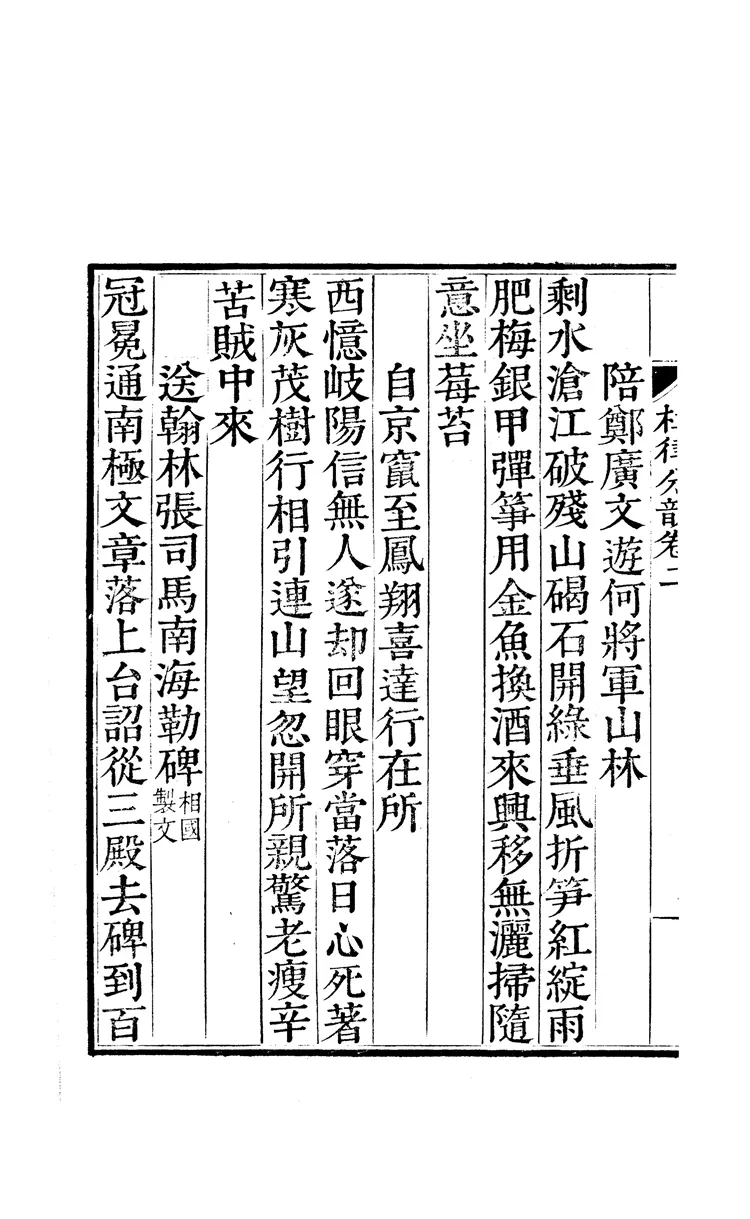 杜律分韻卷二
陪鄭廣文遊何將軍山林
剩水滄江破殘山碣石開綠垂風折笋紅綻雨
肥梅銀甲彈箏用金魚換酒來興移無灑掃隨
意坐莓苔
自京竄至鳳翔喜達行在所
西憶岐陽信無人遂却回眼穿當落日心死著
寒灰茂樹行相引連山望忽開所親驚老瘦辛
苦賊中來
送翰林張司馬南海勒碑相國製文
冠冕通南極文章落上台詔從三殿去碑到百